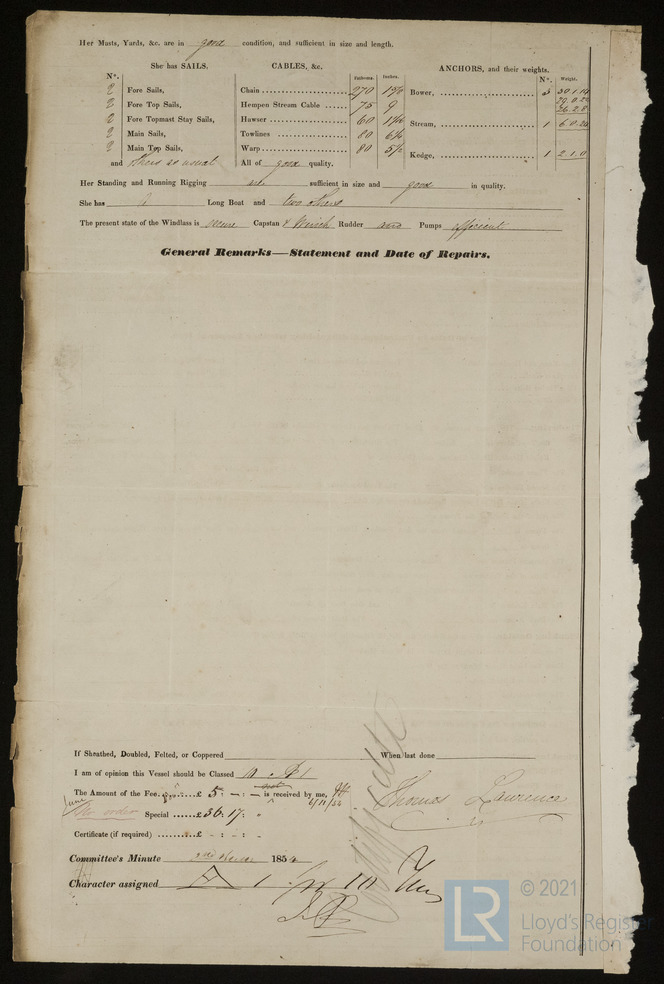 Her Masts, Yards, &c. are in good condition, and sufficient in size and length.
She has SAILS. CABLES, &c. ANCHORS, and their weights.
N°. Fathoms. Inches. N°. Weight.
2 Fore Sails, Chain 270 Bower, 3 30.1.14
2 Fore Top Sails, Hempen Stream Cable 75 9
2 Fore Topmast Stay Sails, Hawser 60 Stream, 1
2 Main Sails, Towlines 80
2 Main Top Sails, Warp 80 5½ Kedge, 1 2.1.0
and others as usual All of good quality.
Her Standing and Running Rigging sufficient in size and good in quality.
She has Long Boat and two others
The present state of the Windlass is secure Capstan & Winch Rudder and Pumps efficient
General Remarks—Statement and Date of Repairs.
If Sheathed, Doubled, Felted, or Coppered When last done
I am of opinion this Vessel should be Classed 10 A 1
The Amount of the Fee £ 5 : – : – is received by me,
not
6/11/54
Thomas Lawrence
order Special £ 36 : 17 : „
Certificate (if required) £ – : – : –
Committee's Minute 1854
Character assigned A 1
© 2021
LR Lloyd's Register
Foundation